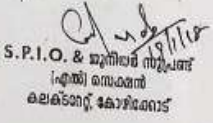 18/1/18
S.P.I.O. & ജൂനിയർ സൂപ്രണ്ട്
(എൽ) സെക്ഷൻ
കലക്ടറേറ്റ്, കോഴിക്കോട്